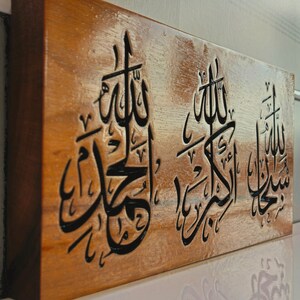 سبحان الله الله أكبر الحمد لله